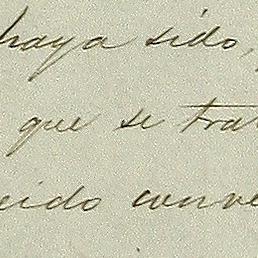 haya sido,
que se trat
eido conve